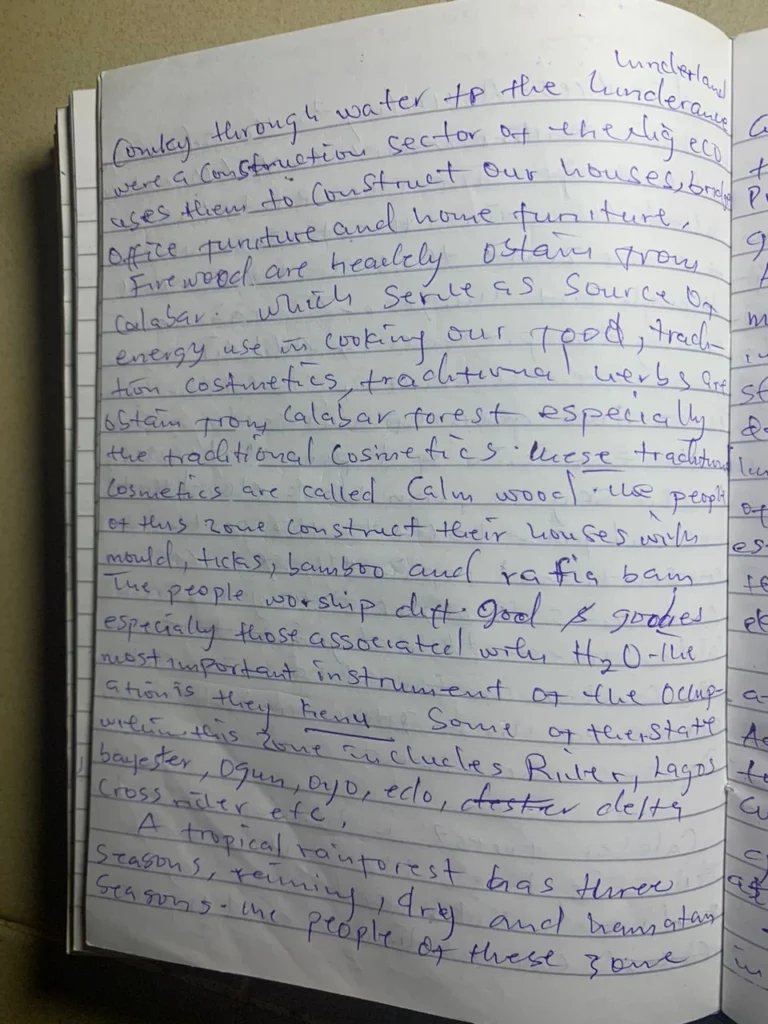 lunderland
Comley through water to the lunderance
were a construction sector of the Nig eco
uses them to construct our houses, bridge
office funiture and home funiture.
Firewood are headely obtain from
Calabar. which serve as source of
energy use in cooking our food, tradi-
tion costmetics, traditional herbs are
obtain from Calabar forest especially
the traditional Cosmetics. these tradition
Cosmetics are called Calm wood. the people
of this zone construct their houses with
mould, ticks, bamboo and rafia bam
The people worship diff. good & goodies
especially those associated with H2O. The
most important instrument of the occup-
ation is they Kenu Some of the state
within this zone includes River, Lagos
bayester, Ogun, Oyo, edo, delta
Cross rider etc.
A tropical rainforest has three
seasons, reining, dry and hamatan
seasons. the people of these zone